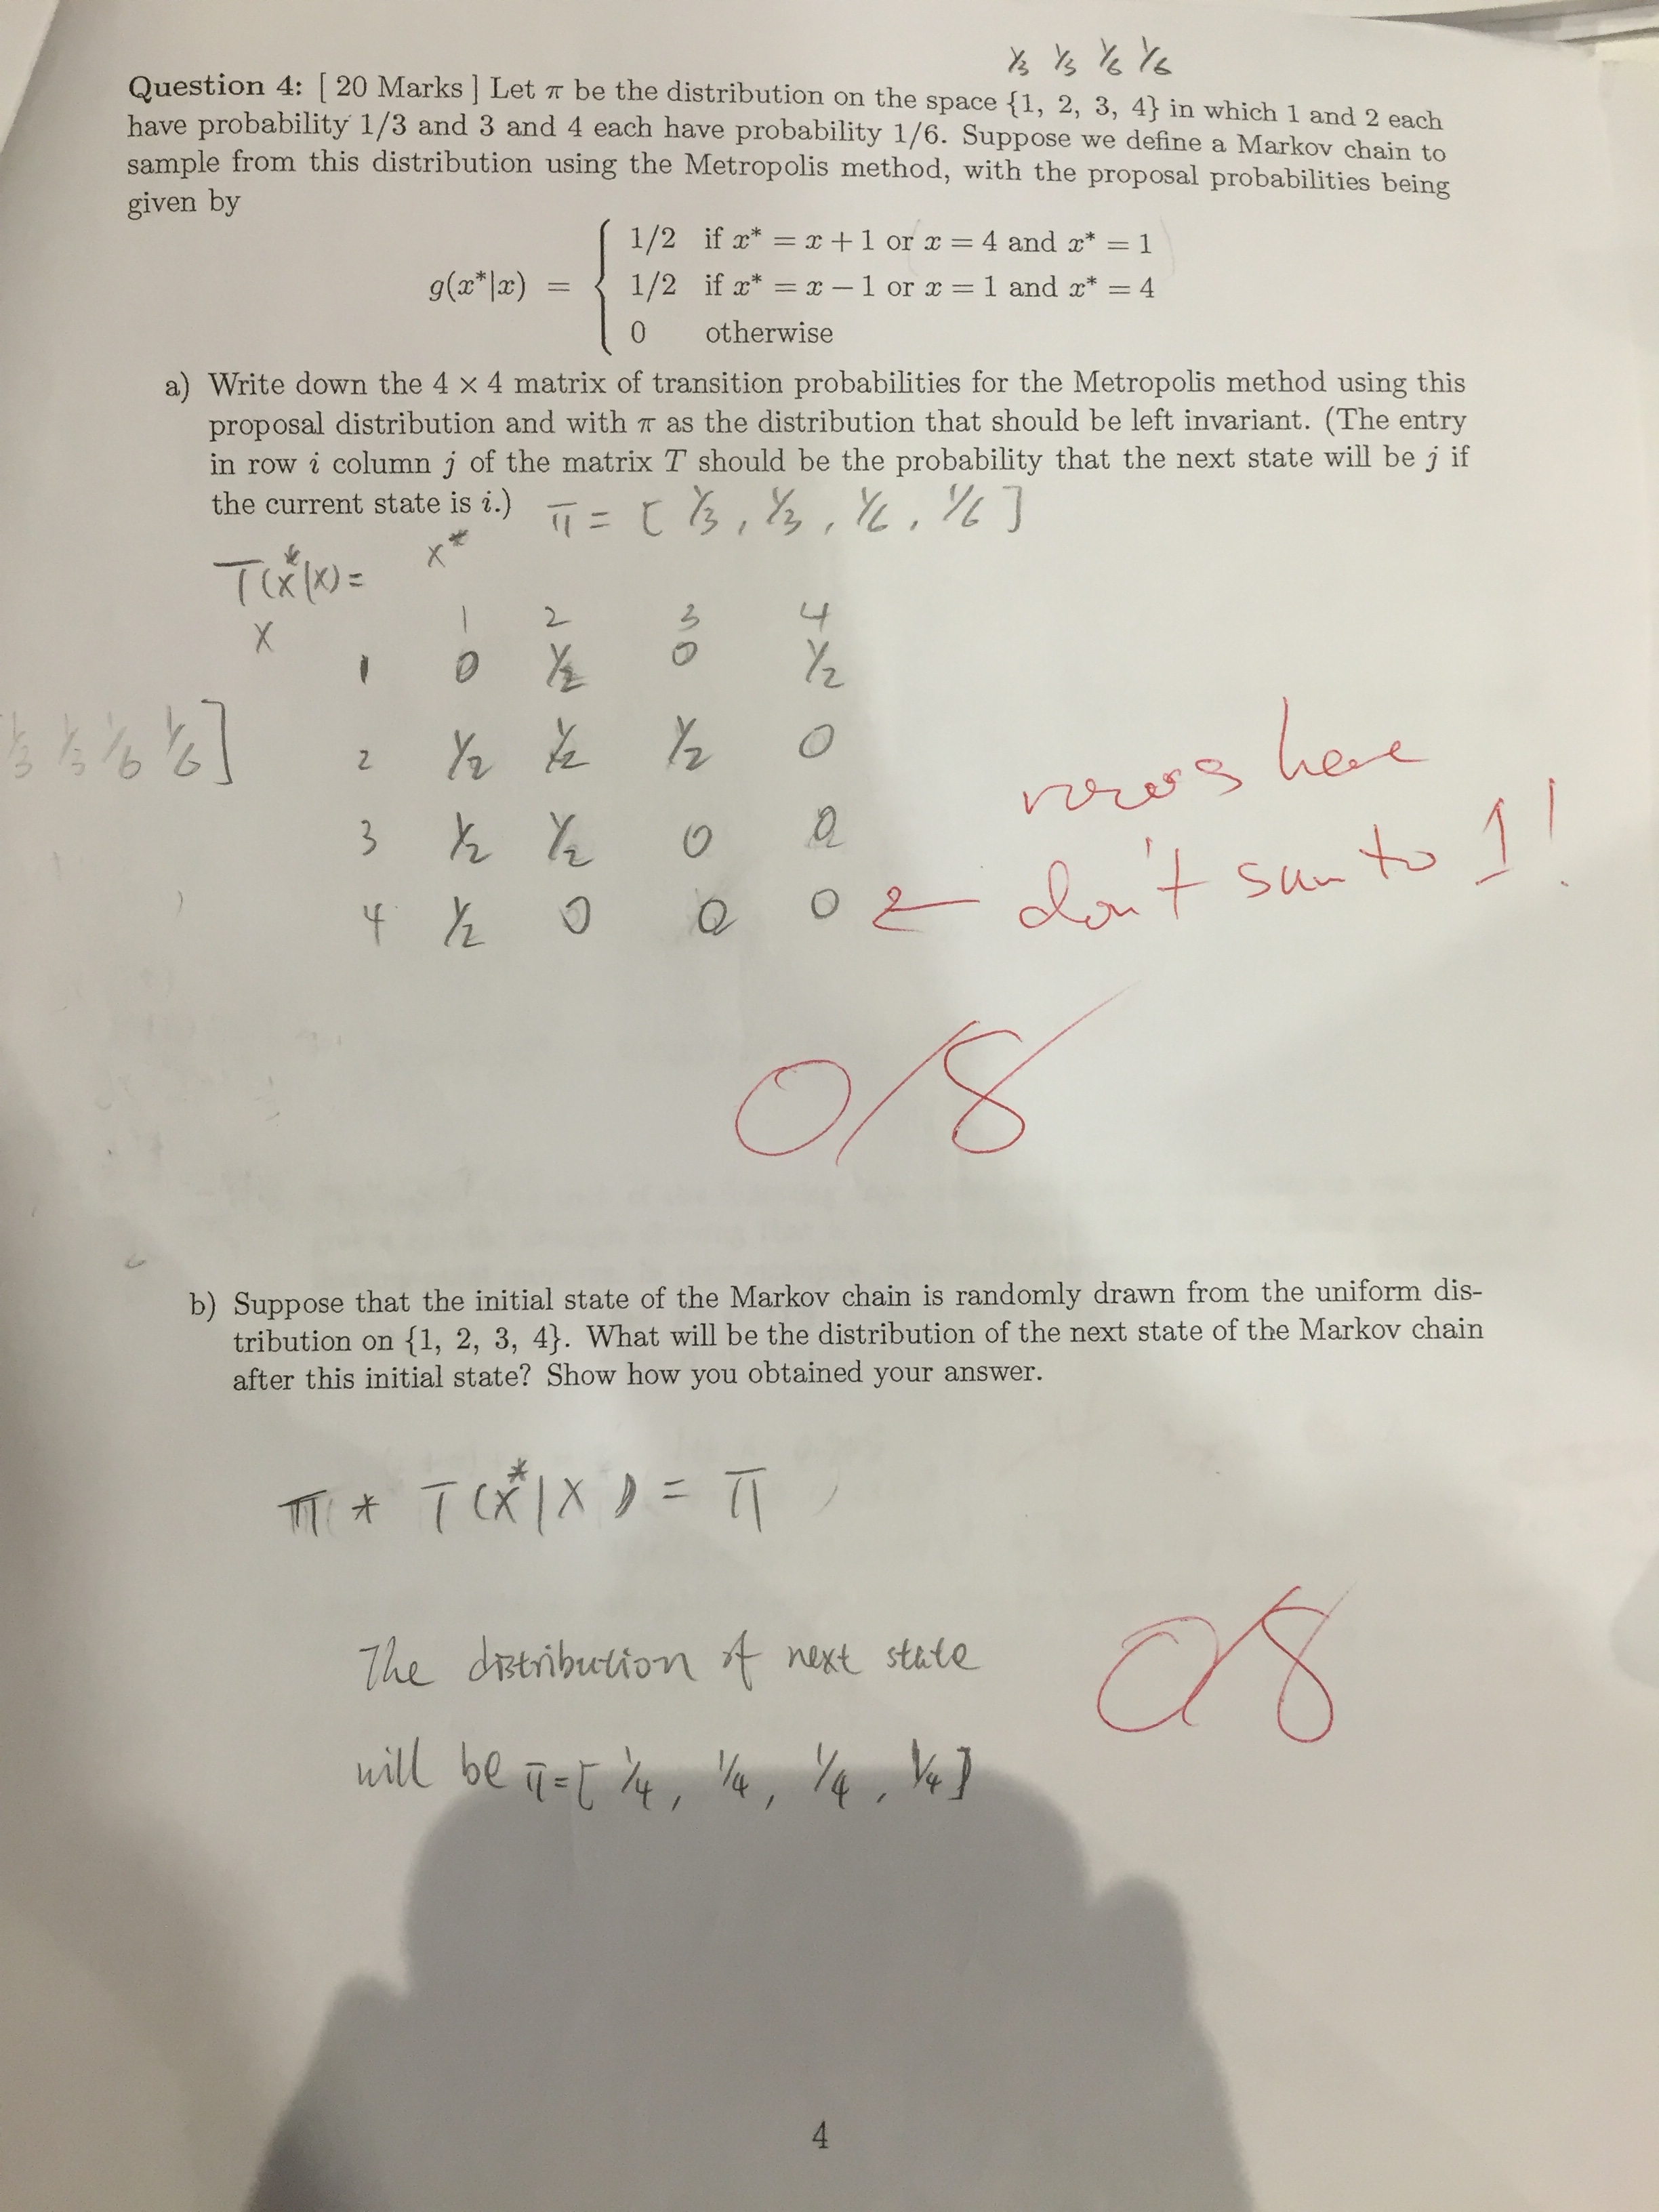 1/3 1/3 1/6 1/6
Question 4: [ 20 Marks ] Let π be the distribution on the space {1, 2, 3, 4} in which 1 and 2 each
have probability 1/3 and 3 and 4 each have probability 1/6. Suppose we define a Markov chain to
sample from this distribution using the Metropolis method, with the proposal probabilities being
given by
1/2 if x* = x + 1 or x = 4 and x* = 1
g(x*|x) = { 1/2 if x* = x − 1 or x = 1 and x* = 4
0 otherwise
a) Write down the 4 × 4 matrix of transition probabilities for the Metropolis method using this
proposal distribution and with π as the distribution that should be left invariant. (The entry
in row i column j of the matrix T should be the probability that the next state will be j if
the current state is i.) π = [ 1/3, 1/3, 1/6, 1/6 ]
T(x*|x) = x*
1 2 3 4
x
1 0 1/2 0 1/2
1/3 1/3 1/6 1/6 ] 2 1/2 1/2 1/2 0
3 1/2 1/2 0 0
4 1/2 0 0 0
rows here
← don't sum to 1!
0/8
b) Suppose that the initial state of the Markov chain is randomly drawn from the uniform dis-
tribution on {1, 2, 3, 4}. What will be the distribution of the next state of the Markov chain
after this initial state? Show how you obtained your answer.
π * T(x*|x) = π
The distribution of next state
0/8
will be π = [ 1/4, 1/4, 1/4, 1/4 ]
4